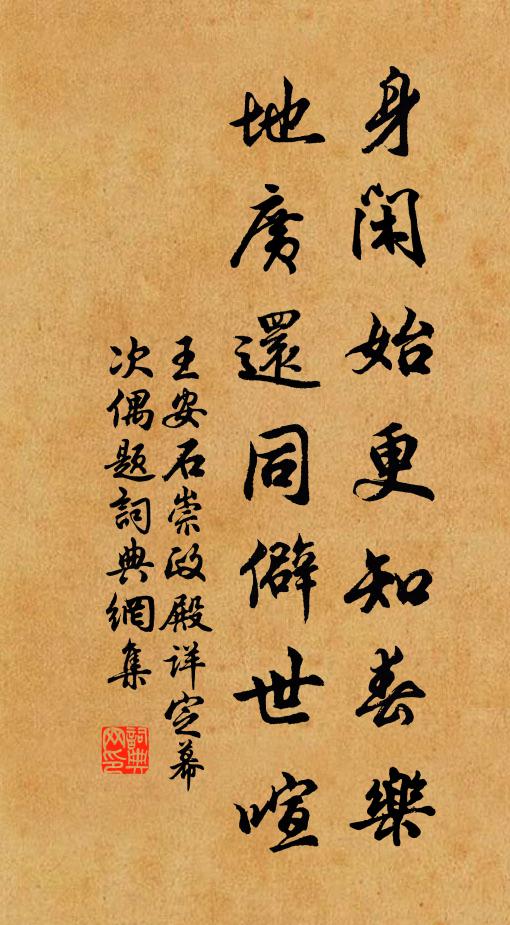 身閑始更知春樂
地廣還同僻世喧
王安石崇政殿详定幕
次偶題詞典網集
詞典
网印